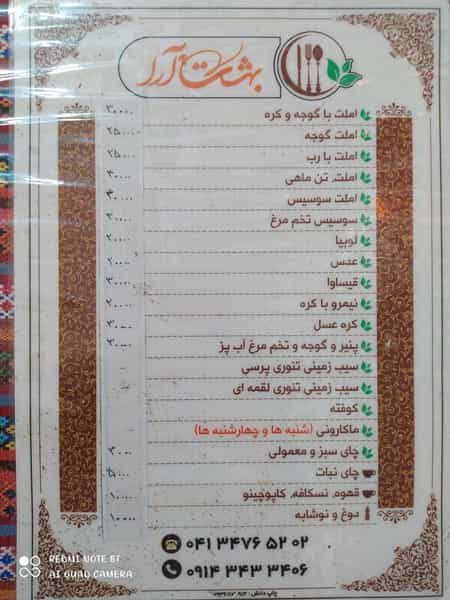 بهشت آرا
املت با گوجه و کره ۳۰۰۰۰
املت گوجه ۲۵۰۰۰۰
املت با رب ۲۵۰۰۰
املت، تن ماهی ۴۰۰۰۰
املت سوسیس ۴۰۰۰۰
سوسیس تخم مرغ
لوبیا ۲۰۰۰۰
عدس ۲۰۰۰۰
قیساوا ۳۰۰۰۰
نیمرو با کره ۲۰۰۰۰
کره عسل
پنیر و گوجه و تخم مرغ آب پز
سیب زمینی تنوری پرسی
سیب زمینی تنوری لقمه ای
کوفته
ماکارونی (شنبه ها و چهارشنبه ها)
چای سبز و معمولی
چای نبات
قهوه، نسکافه، کاپوچینو ۱۰۰۰۰
دوغ و نوشابه ۱۰۰۰۰
۰۴۱ ۳۴۷۶ ۵۲ ۰۲
۰۹۱۴ ۳۴۳ ۳۴۰۶
چاپ دانش:
REDMI NOTE 8T
AI QUAD CAMERA